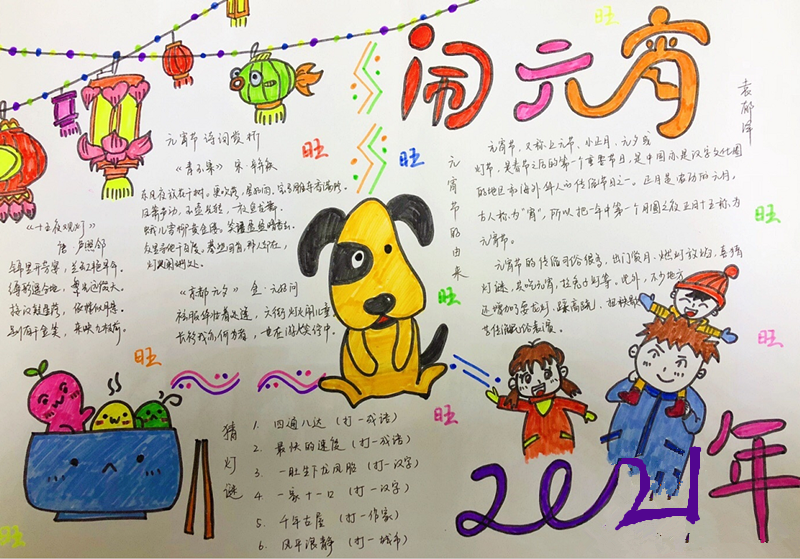 闹元宵
袁郁泽
元宵节的由来
元宵节，又称上元节、小正月、元夕或
灯节，是春节之后的第一个重要节日，是中国亦是汉字文化圈
的地区和海外华人的传统节日之一。正月是农历的元月，
古人称为"宵"，所以把一年中第一个月圆之夜正月十五称为
元宵节。
元宵节的传统习俗很多，出门赏月、燃灯放焰、喜猜
灯谜、共吃元宵、拉兔子灯等。此外，不少地方
还增加了耍龙灯、踩高跷、扭秧歌
等传统民俗表演。
元宵节诗词赏析
《青玉案》 宋·辛弃疾
东风夜放花千树。更吹落、星如雨。宝马雕车香满路。
凤箫声动，玉壶光转，一夜鱼龙舞。
蛾儿雪柳黄金缕。笑语盈盈暗香去。
众里寻他千百度。蓦然回首，那人却在，
灯火阑珊处。
《十五夜观灯》
唐 卢照邻
锦里开芳宴，兰缸艳早年。
缛彩遥分地，繁光远缀天。
接汉疑星落，依楼似月悬。
别有千金笑，来映九枝前。
《京都元夕》 金·元好问
袨服华妆着处逢，六街灯火闹儿童。
长衫我亦何为者，也在游人笑语中。
猜灯谜
1. 四通八达（打一成语）
2. 最快的速度（打一成语）
3. 一肚生下龙凤胎（打一汉字）
4. 一家十一口（打一汉字）
5. 千年古屋（打一作家）
6. 风平浪静（打一城市）
2021年
旺
旺
旺
旺
旺
旺
旺
旺
旺